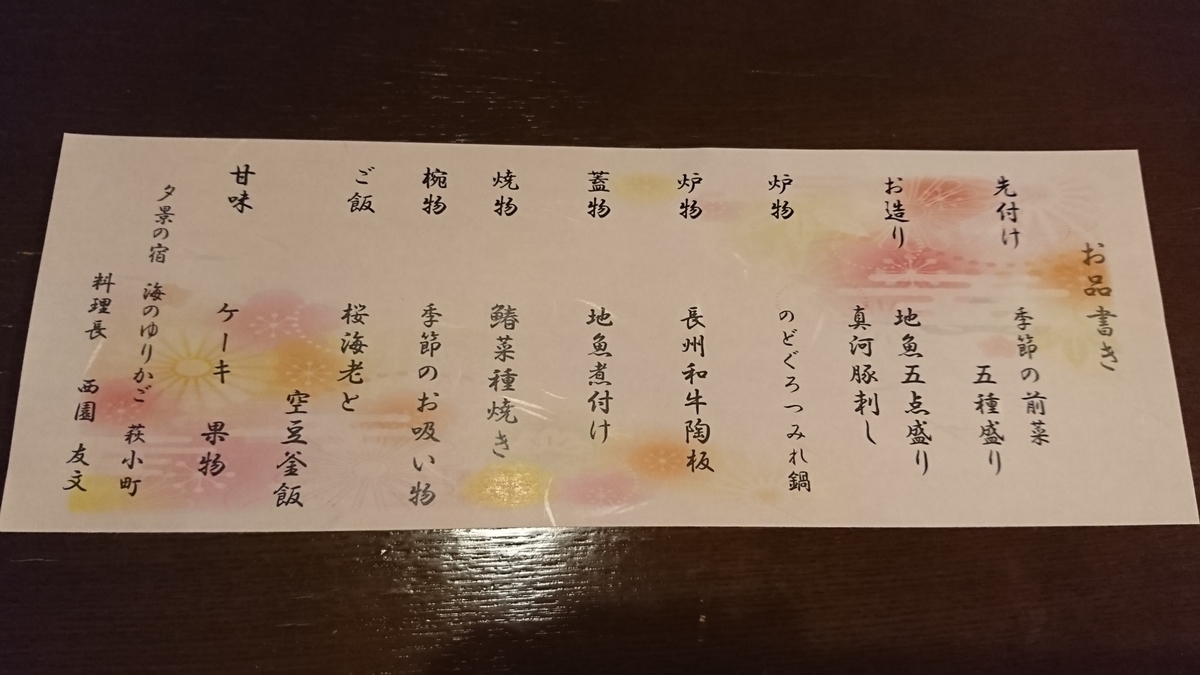 お品書き
先付け 季節の前菜
五種盛り
お造り 地魚五点盛り
真河豚刺し
炉物 のどぐろつみれ鍋
炉物 長州和牛陶板
蓋物 地魚煮付け
焼物 鰆菜種焼き
椀物 季節のお吸い物
ご飯 桜海老と
空豆釜飯
甘味 ケーキ 果物
夕景の宿 海のゆりかご 萩小町
料理長 西園 友文